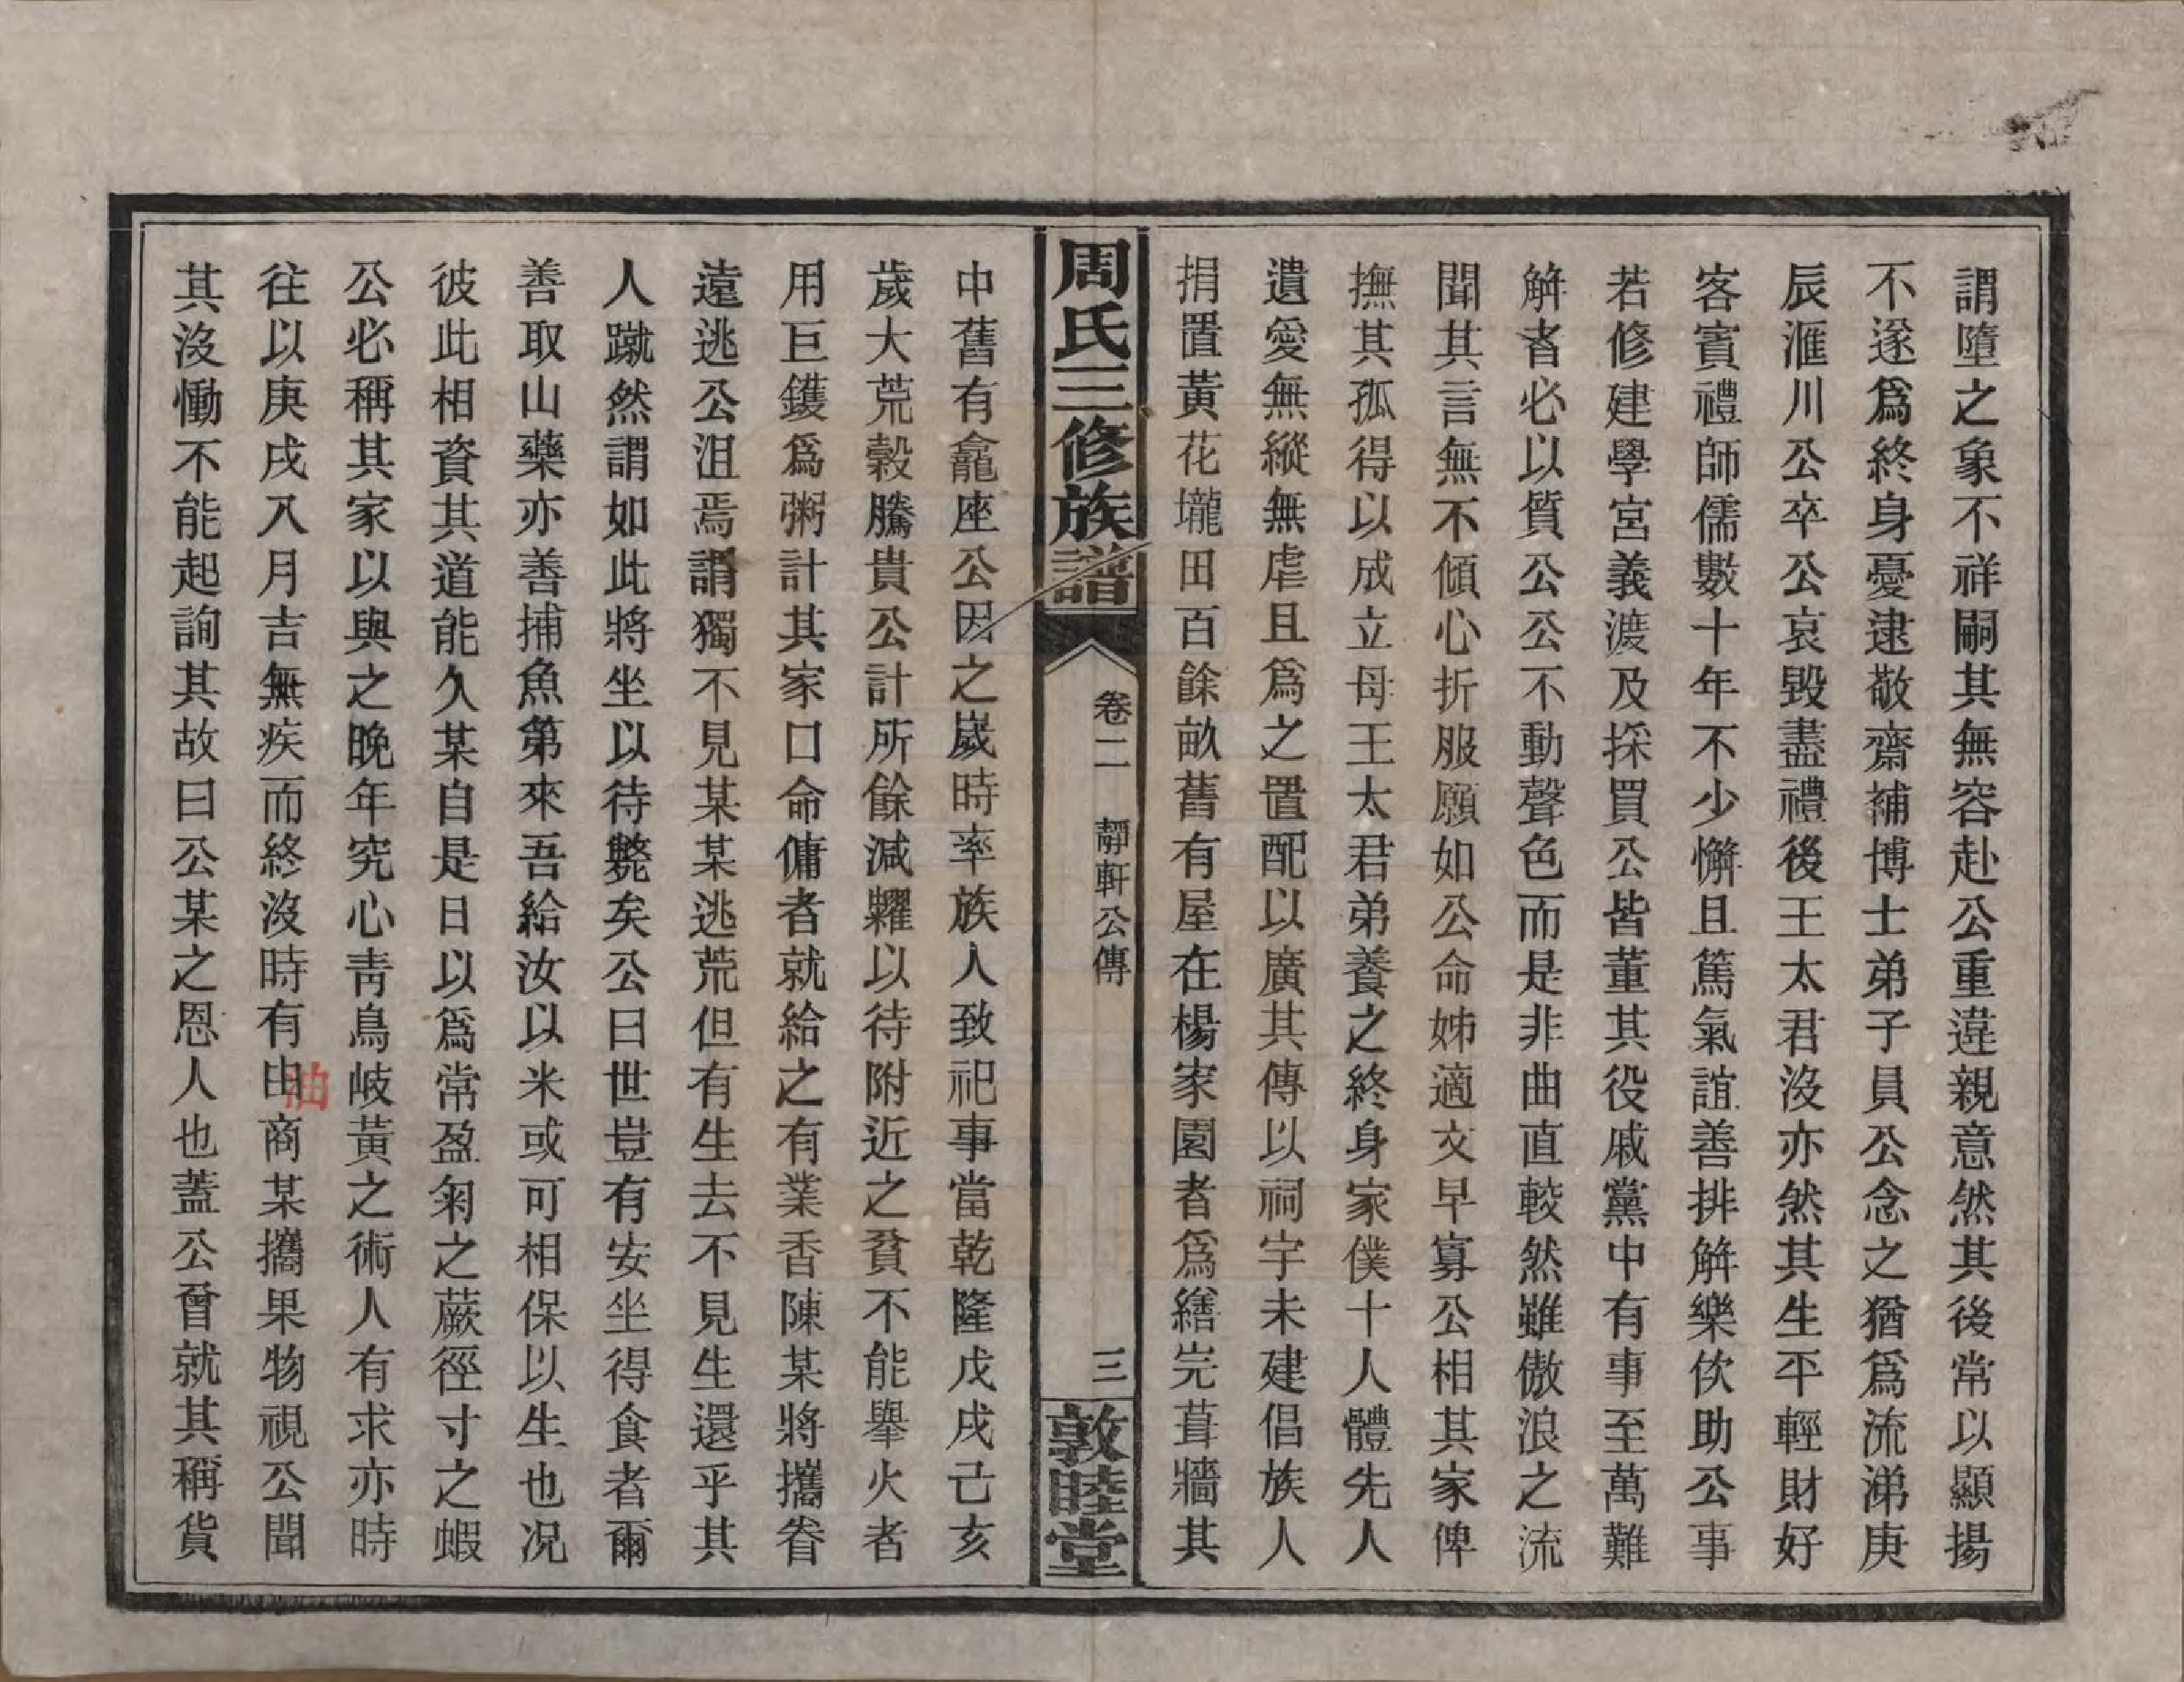 謂墮之象不祥嗣其無容赴公重違親意然其後常以顯揚
不遂爲終身憂逮敬齋補博士弟子員公念之猶爲流涕庚
辰滙川公卒公哀毀盡禮後王太君沒亦然其生平輕財好
客賓禮師儒數十年不少懈且篤氣誼善排解樂佽助公事
若修建學宮義渡及採買公皆董其役戚黨中有事至萬難
解者必以質公公不動聲色而是非曲直較然雖傲浪之流
聞其言無不傾心折服願如公命姊適文早寡公相其家俾
撫其孤得以成立母王太君弟養之終身家僕十人體先人
遺愛無縱無虐且爲之置配以廣其傳以祠宇未建倡族人
捐置黃花壠田百餘畝舊有屋在楊家園者爲繕完葺牆其
周氏三修族譜
卷二 靜軒公傳
三
敦睦堂
中舊有龕座公因之歲時率族人致祀事當乾隆戊戌己亥
歲大荒穀騰貴公計所餘減糶以待附近之貧不能舉火者
用巨鑊爲粥計其家口命傭者就給之有業香陳某將攜眷
遠逃公沮焉謂獨不見某某逃荒但有生去不見生還乎其
人蹴然謂如此將坐以待斃矣公曰世豈有安坐得食者爾
善取山藥亦善捕魚第來吾給汝以米或可相保以生也况
彼此相資其道能久某自是日以爲常盈匊之蕨徑寸之蝦
公必稱其家以與之晚年究心靑鳥岐黃之術人有求亦時
往以庚戌八月吉無疾而終沒時有由商某攜果物視公聞
油
其沒慟不能起詢其故曰公某之恩人也蓋公曾就其稱貨